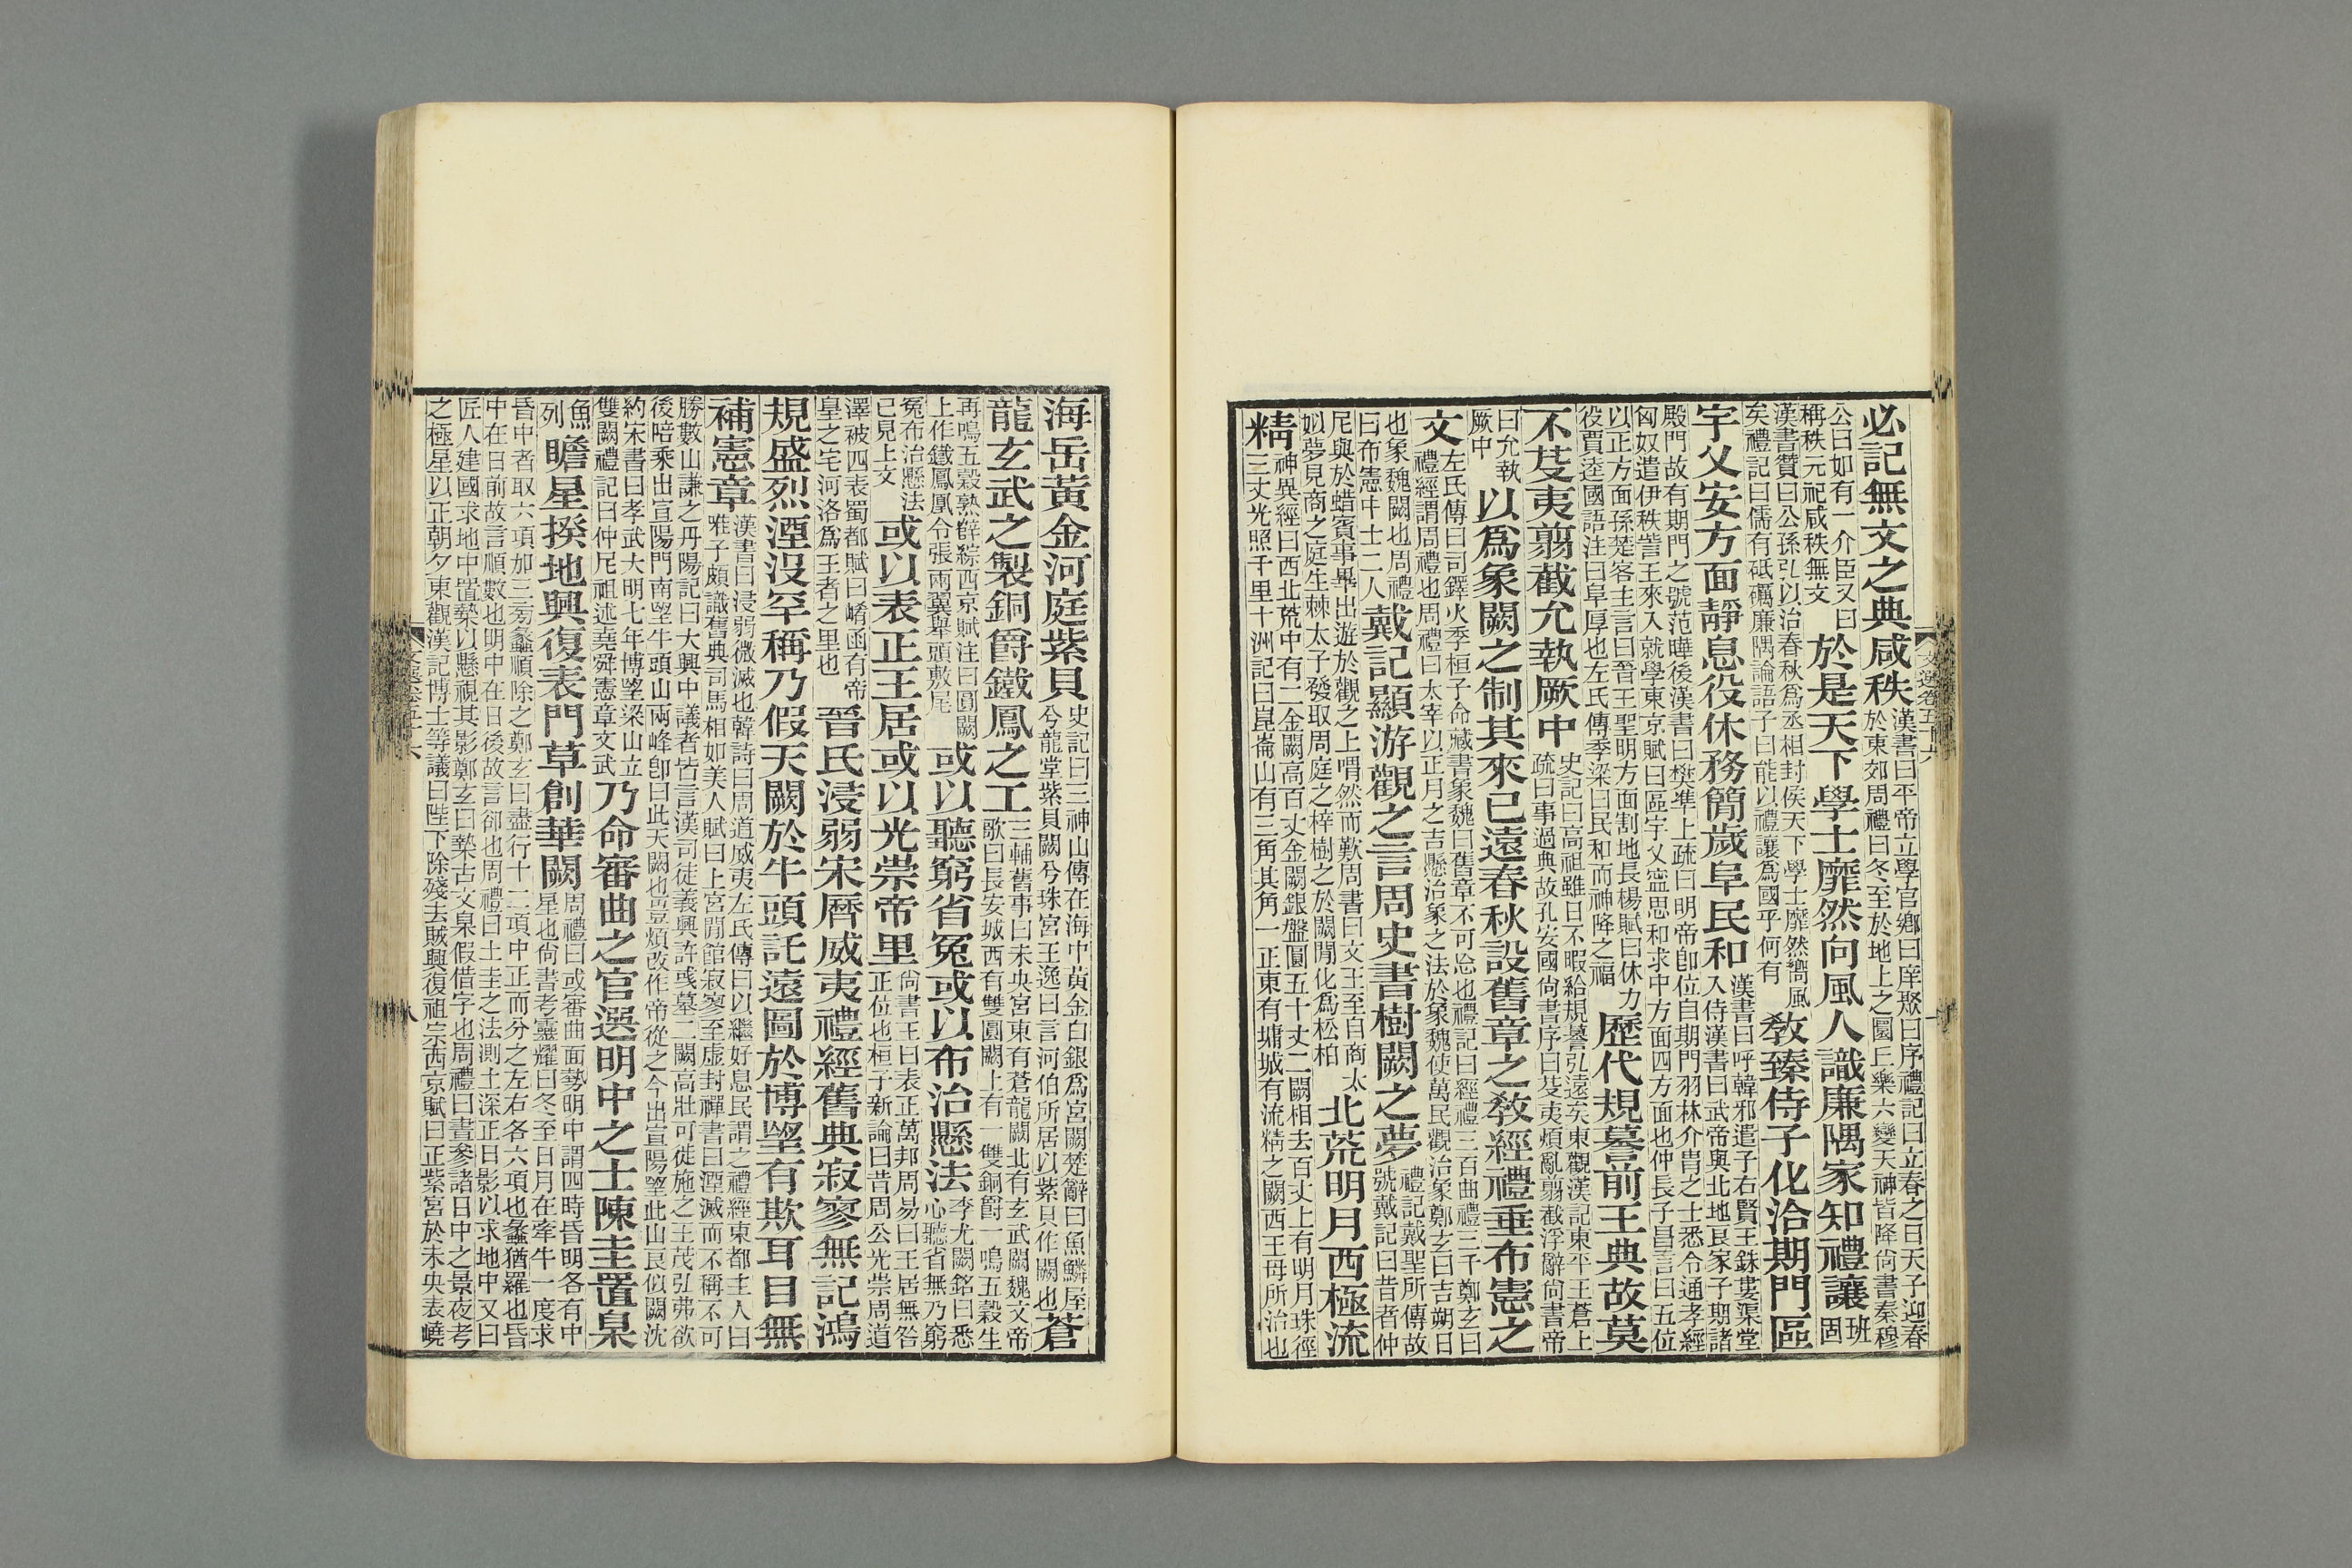 必記無文之典咸秩漢書曰平帝立學官鄉曰庠聚曰序禮記曰立春之日天子迎春於東郊周禮曰冬至於地上之圜丘樂六變天神皆降尚書秦穆
公曰如有一介臣又曰稱秩元祀咸秩無文於是天下學士靡然向風人識廉隅家知禮讓班固
漢書贊曰公孫弘以治春秋爲丞相封侯天下學士靡然嚮風矣禮記曰儒有砥礪廉隅論語子曰能以禮讓爲國乎何有敎臻侍子化洽期門區
宇乂安方面靜息役休務簡歲阜民和漢書曰呼韓邪遣子右賢王銖婁渠堂入侍漢書曰武帝與北地良家子期諸
殿門故有期門之號范曄後漢書曰樊準上疏曰明帝卽位自期門羽林介胄之士悉令通孝經匈奴遣伊秩訾王來入就學東京賦曰區宇乂寍思和求中方面四方面也仲長子昌言曰五位
以正方面孫楚客主言曰晉王聖明方面割地長楊賦曰休力役賈逵國語注曰阜厚也左氏傳季梁曰民和而神降之福歷代規謩前王典故莫
不芟夷翦截允執厥中史記曰高祖雖日不暇給規摹弘遠矣東觀漢記東平王蒼上疏曰事過典故孔安國尚書序曰芟夷煩亂翦截浮辭尚書帝
曰允執厥中以爲象闕之制其來已遠春秋設舊章之敎經禮垂布憲之
文左氏傳曰司鐸火季桓子命藏書象魏曰舊章不可忘也禮記曰經禮三百曲禮三千鄭玄曰禮經謂周禮也周禮曰太宰以正月之吉懸治象之法於象魏使萬民觀治象鄭玄曰吉朔日
也象魏闕也周禮曰布憲中士二人戴記顯游觀之言周史書樹闕之夢禮記戴聖所傳故號戴記曰昔者仲
尼與於蜡賓事畢出遊於觀之上喟然而歎周書曰文王至自商太姒夢見商之庭生棘太子發取周庭之梓樹之於闕閒化爲松柏北荒明月西極流
精神異經曰西北荒中有二金闕高百丈金闕銀盤圓五十丈二闕相去百丈上有明月珠徑三丈光照千里十洲記曰崑崙山有三角其角一正東有墉城有流精之闕西王母所治也
海岳黃金河庭紫貝史記曰三神山傳在海中黃金白銀爲宮闕楚辭曰魚鱗屋兮龍堂紫貝闕兮珠宮王逸曰言河伯所居以紫貝作闕也蒼
龍玄武之製銅爵鐵鳳之工三輔舊事曰未央宮東有蒼龍闕北有玄武闕魏文帝歌曰長安城西有雙圓闕上有一雙銅爵一鳴五穀生
再鳴五穀熟薛綜西京賦注曰圓闕上作鐵鳳凰令張兩翼舉頭敷尾或以聽窮省冤或以布治懸法李尤闕銘曰悉心聽省無乃窮
冤布治懸法已見上文或以表正王居或以光崇帝里尚書王曰表正萬邦周易曰王居無咎正位也桓子新論曰昔周公光崇周道
澤被四表蜀都賦曰崤函有帝皇之宅河洛爲王者之里也晉氏浸弱宋曆威夷禮經舊典寂寥無記鴻
規盛烈湮沒罕稱乃假天闕於牛頭託遠圖於博望有欺耳目無
補憲章漢書曰浸弱微滅也韓詩曰周道威夷左氏傳曰以繼好息民謂之禮經東都主人曰唯子頗識舊典司馬相如美人賦曰上宮閒館寂寥至虛封禪書曰湮滅而不稱不可
勝數山謙之丹陽記曰大興中議者皆言漢司徒義興許彧墓二闕高壯可徙施之王茂弘弗欲後陪乘出宣陽門南望牛頭山兩峰卽曰此天闕也豈煩改作帝從之今出宣陽望此山良似闕沈
約宋書曰孝武大明七年博望梁山立雙闕禮記曰仲尼祖述堯舜憲章文武乃命審曲之官選明中之士陳圭置臬
瞻星揆地興復表門草創華闕周禮曰或審曲面勢明中謂四時昏明各有中星也尚書考靈耀曰冬至日月在牽牛一度求
昏中者取六項加三旁蠡順除之鄭玄曰盡行十二項中正而分之左右各六項也蠡猶羅也昏中在日前故言順數也明中在日後故言卻也周禮曰土圭之法測土深正日影以求地中又曰
匠人建國求地中置槷以懸視其影鄭玄曰槷古文臬假借字也周禮曰晝參諸日中之景夜考之極星以正朝夕東觀漢記博士等議曰陛下除殘去賊興復祖宗西京賦曰正紫宮於未央表嶢
文選卷五十六
八